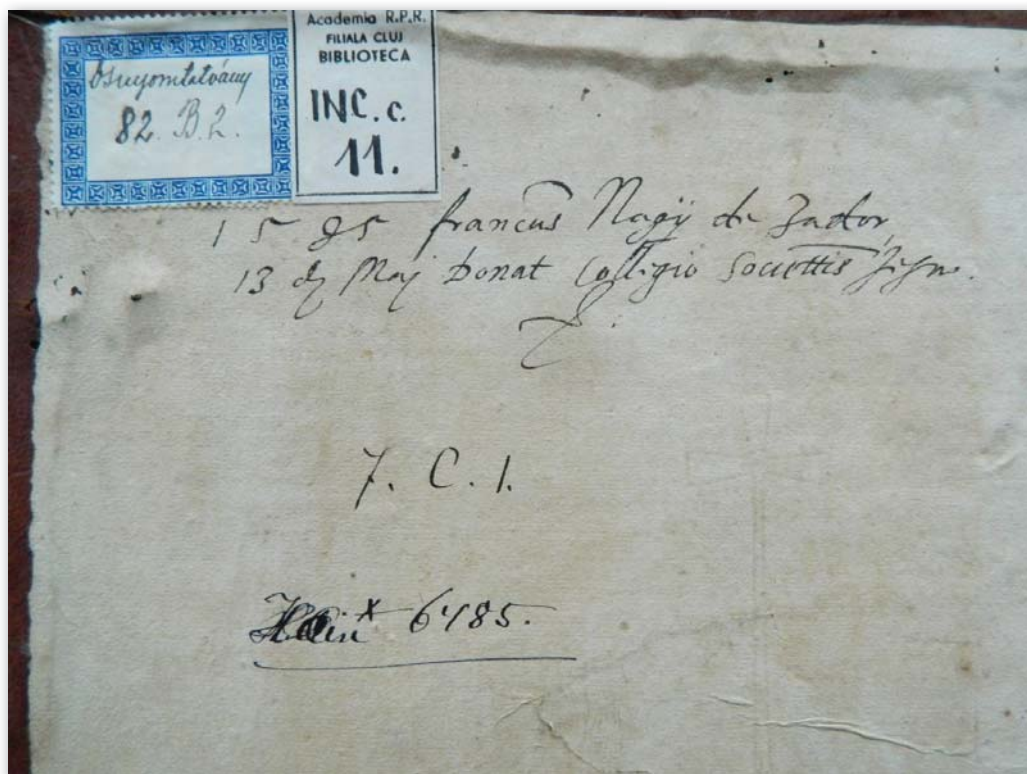 Ősnyomtatvány
82. B. 2.
Academia R.P.R.
FILIALA CLUJ
BIBLIOTECA
INC. c.
11.
1585 francus Nagÿ de Zador
13 dÿ Maj Donat Collegio Societtis Jesu.
7. C. 1.
Hain* 6485.